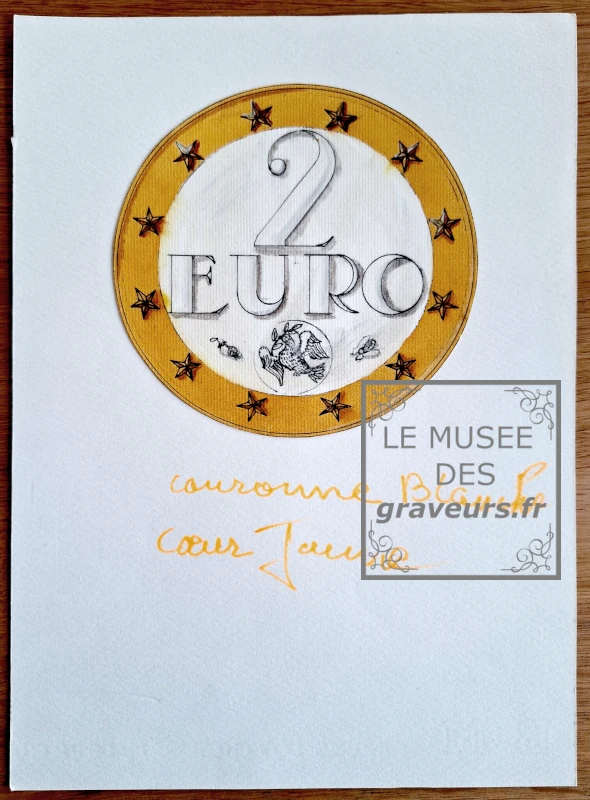 2
EURO
couronne Blanche
cœur Jaune
LE MUSEE
DES
graveurs.fr